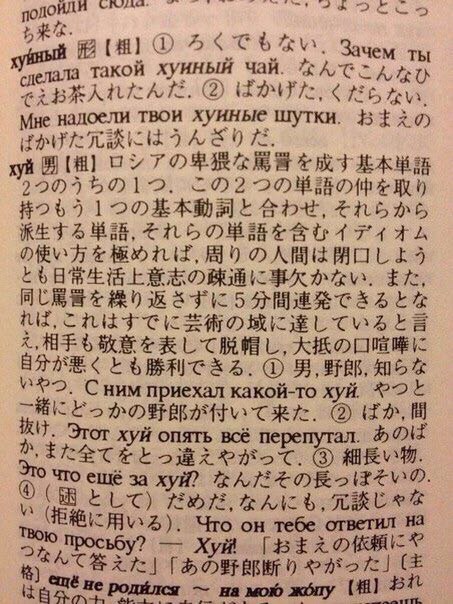 подойди сюда.
ち来な.
хуйный 形【粗】① ろくでもない. Зачем ты
сделала такой хуиный чай. なんでこんなひ
でえお茶入れたんだ. ② ばかげた, くだらない.
Мне надоели твои хуиные шутки. おまえの
ばかげた冗談にはうんざりだ.
хуй 男【粗】ロシアの卑猥な罵詈を成す基本単語
2つのうちの1つ. この2つの単語の仲を取り
持つもう1つの基本動詞と合わせ, それらから
派生する単語, それらの単語を含むイディオム
の使い方を極めれば, 周りの人間は閉口しよう
とも日常生活上意志の疎通に事欠かない. また,
同じ罵詈を繰り返さずに5分間連発できるとな
れば, これはすでに芸術の域に達していると言
え, 相手も敬意を表して脱帽し, 大抵の口喧嘩に
自分が悪くとも勝利できる. ① 男, 野郎, 知らな
いやつ. С ним приехал какой-то хуй. やつと
一緒にどっかの野郎が付いて来た. ② ばか, 間
抜け. Этот хуй опять всё перепутал. あのば
か, また全てをとっ違えやがって. ③ 細長い物.
Это что ещё за хуй? なんだその長っぽそいの.
④ (述 として) だめだ, なんにも, 冗談じゃな
い (拒絶に用いる). Что он тебе ответил на
твою просьбу? — Хуй! 「おまえの依頼にや
つなんて答えた」「あの野郎断りやがった」[主
格] ещё не родился ~ на мою жопу【粗】おれ
は自分の力